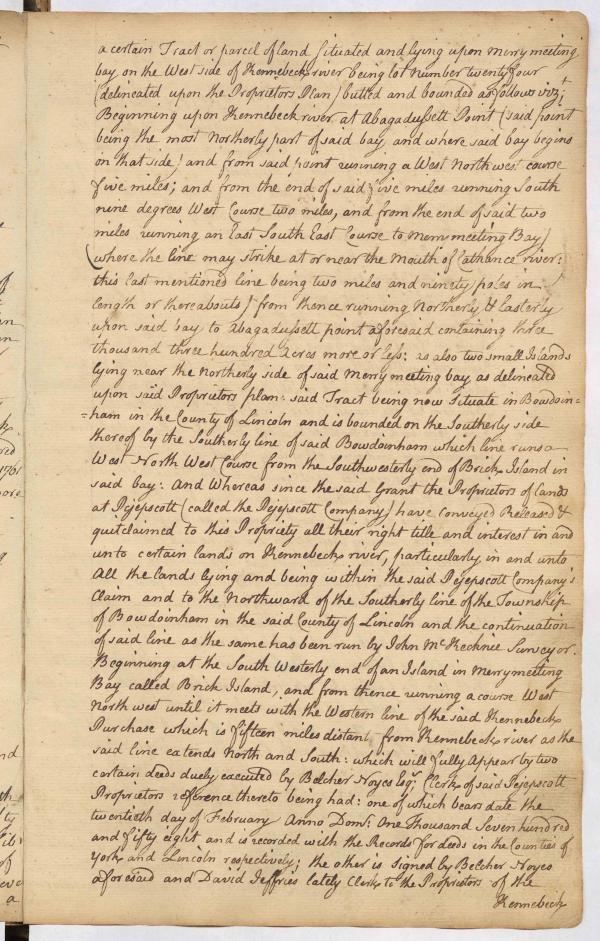 a certain Tract or parcel of land Situated and lying upon Merrymeeting
bay on the West side of Kennebeck river being lot number twenty four
(delineated upon the Proprietors Plan) butted and bounded as follows viz;
Beginning upon Kennebeck river at Abagadussett Point (said point
being the most Northerly part of said bay, and where said bay begins
on that side) and from said point running a West North west course
five miles; and from the end of said five miles running South
nine degrees West Course two miles, and from the end of said two
miles running an East South East Course to Merrymeeting Bay)
(where the line may strike at or near the Mouth of Cathance river:
this East mentioned line being two miles and ninety poles in
length or thereabouts) from thence running Northerly & Easterly
upon said bay to abagadussett point aforesaid containing three
thousand three hundred Acres more or less: as also two small Islands
lying near the Northerly side of said Merrymeeting bay as delineated
upon said Proprietors plan: said Tract being now Situate in Bowdoin-
=ham in the County of Lincoln and is bounded on the Southerly side
thereof by the Southerly line of said Bowdoinham which line runs a
West North West Course from the Southwesterly end of Brick Island in
said bay: And Whereas since the said Grant the Proprietors of Lands
at Pejepscott (called the Pejepscott Company) have conveyed Released &
quitclaimed to this Propriety all their right title and interest in and
unto certain lands on Kennebeck river, particularly in and unto
All the lands lying and being within the said Pejepscott Company's
Claim and to the Northward of the Southerly line of the Township
of Bowdoinham in the said County of Lincoln and the continuation
of said line as the same has been run by John McKechnie Surveyor.
Beginning at the South Westerly end of an Island in Merrymeeting
Bay called Brick Island, and from thence running a course West
North west until it meets with the Western line of the said Kennebeck
Purchase which is fifteen miles distant from Kennebeck river as the
said line extends North and South: which will fully Appear by two
certain deeds duely executed by Belcher Noyes Esqr. Clerk of said Pejepscott
Proprietors reference thereto being had: one of which bears date the
twentieth day of February Anno Domi. One Thousand Seven hundred
and fifty eight, and is recorded with the Records for deeds in the Counties of
York and Lincoln respectively; the other is Signed by Belcher Noyes
aforesaid and David Jeffries lately Clerk to the Proprietors of the
Kennebeck